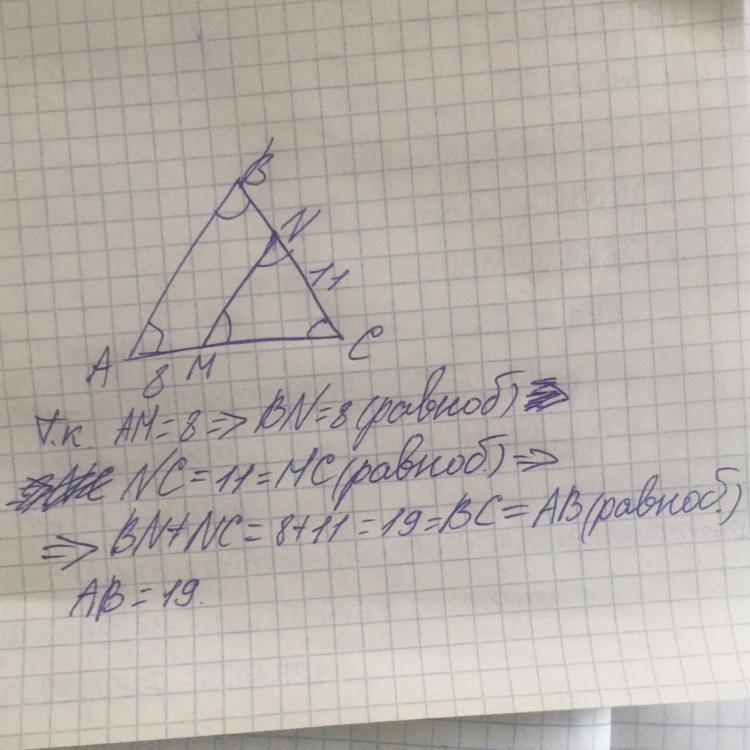 B
N
11
A
8
M
C
Т.к. AM = 8 => BN = 8 (равноб)
NC = 11 = MC (равноб.) =>
=> BN + NC = 8 + 11 = 19 = BC = AB (равноб.)
AB = 19.